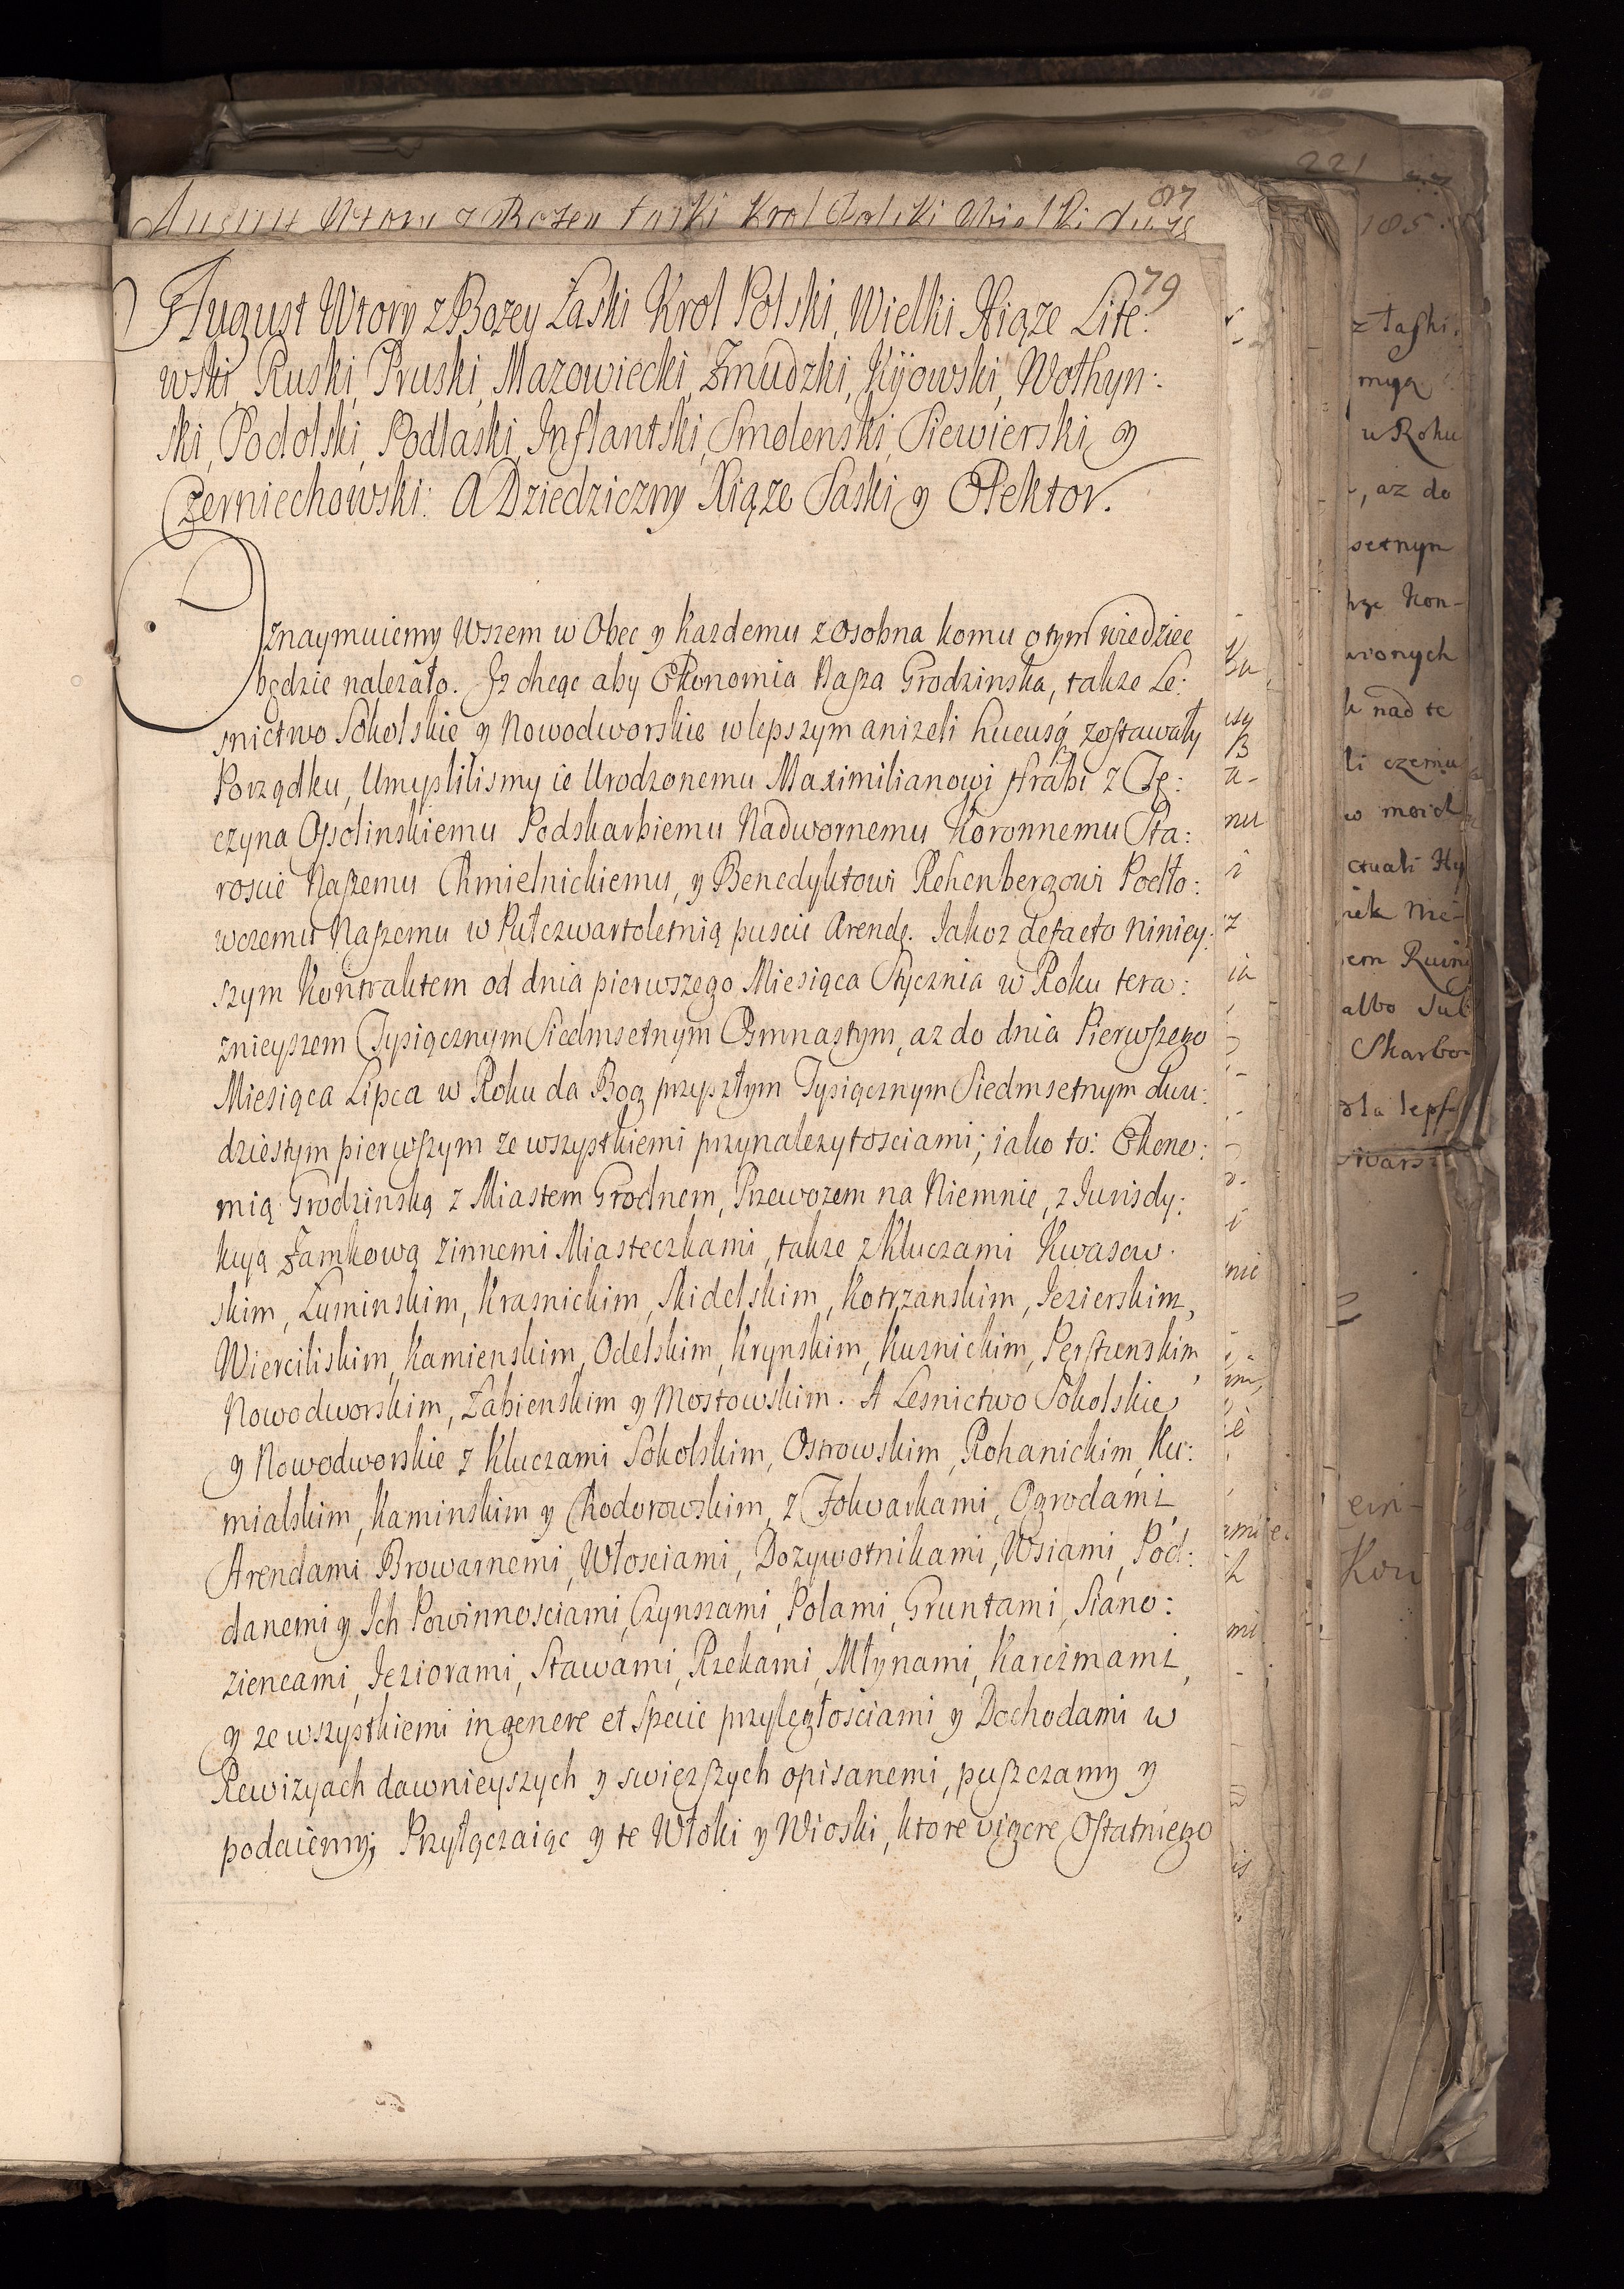 221
87
August Wtory z Bozey Łaski Krol Polski Wielki
79
August Wtory z Bozey Łaski Krol Polski, Wielki Xiąze Lite:
wski, Ruski, Pruski, Mazowiecki, Zmudzki, Kijowski, Wołhyn:
ski, Podolski, Podlaski, Inflantski, Smolenski, Siewierski y
Czerniechowski: A Dziedziczny Xiąze Saski y Elektor.
Oznaymuiemy Wszem w Obec y kazdemu z osobna komu o tym wiedziec
będzie nalezało. Iz chcąc aby Ekonomia Nasza Grodzinska, takze Le:
snictwo Sokolskie y Nowodworskie w lepszym anizeli hucusq zostawały
Porządku, Umyslilismy ie Urodzonemu Maximilianowi Hrabi z Tę:
czyna Ossolinskiemu Podskarbiemu Nadwornemu Koronnemu Sta:
roscie Naszemu Chmielnickiemu, y Benedyktowi Rehenbergowi Podło:
wczemu Naszemu w Pułczwartoletnią puscic Arendę. Jakoz de facto niniey:
szym Kontraktem od dnia pierwszego Miesiąca Stycznia w Roku tera:
znieyszem Tysiącznym Siedmsetnym Osmnastym, az do dnia Pierwszego
Miesiąca Lipca w Roku da Bog przyszłym Tysiącznym Siedmsetnym dwu:
dziestym pierwszym ze wszystkiemi przynalezytosciami; iako to: Ekono:
mią Grodzinską z Miastem Grodnem, Przewozem na Niemnie, z Jurisdy:
kcyą Zamkową z innemi Miasteczkami, takze z Kluczami Kwasow:
skim, Łuminskim, Krasnickim, Skidelskim, Kotrzanskim, Jezierskim,
Wierciliskim, Kamienskim, Odelskim, Krynskim, Kuznickim, Perstunskim,
Nowodworskim, Łabienskim y Mostowskim. A Lesnictwo Sokolskie
y Nowodworskie z Kluczami Sokolskim, Ostrowskim, Rohanickim, Ku:
mialskim, Kaminskim y Chodorowskim, z Folwarkami, Ogrodami,
Arendami Browarnemi, Włosciami, Dozywotnikami, Wsiami, Pod:
danemi y Ich Powinnosciami, Czynszami, Polami, Gruntami, Siano:
ziencami, Jeziorami, Stawami, Rzekami, Młynami, Karczmami,
y ze wszystkiemi in genere et specie przyległosciami y Dochodami w
Rewizyach dawnieyszych y swięzszych opisanemi, puszczamy y
podaiemy; Przyłączaiąc y te Włoki y Wioski, ktore vigore Ostatniego
185
z łaski
w Roku
, az do
setnym
nad te
li czemu
w moich
albo Sub
Skarbo
dla lepsz